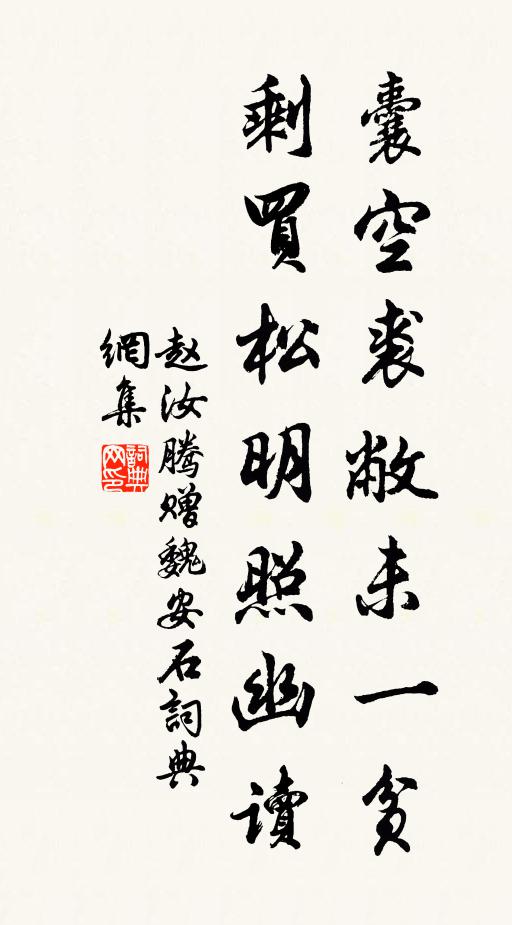 囊空裘敝未一贫
剩買松明照幽读
赵汝腾赠魏安石詞典
網集
詞典网印